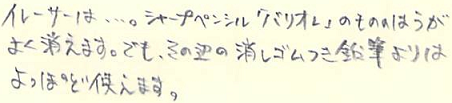 イレーサーは…。シャープペンシル「バリオL」のもののほうが
よく消えます。でも、その辺の消しゴムつき鉛筆よりは
よっぽど使えます。